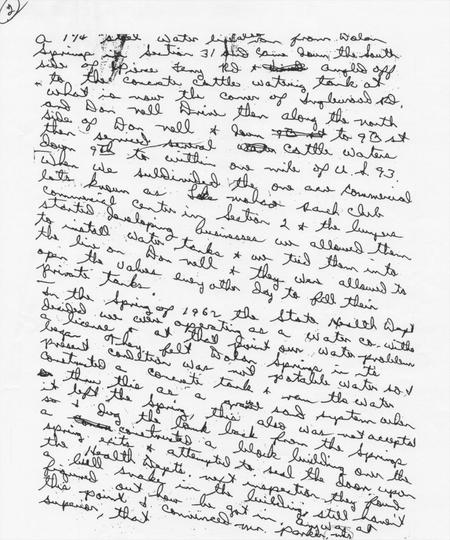 2
A 1 1/4 steel water line ran from Dolan
Springs in Section 31 and came down the South
side of Pierce Ferry Rd & angled off
to the concrete cattle watering tank at
what is now the corner of Inglewood Rd.
and Don nell Drive then along the north
side of Don nell & down to 9th st
then serviced several cattle waters
down 9th to within one mile of U.S 93.
When we subdivided the one acre commercial
lots known as Lake mohave Ranch Club
commercial center in Section 2 & the buyers
started developing businesses we allowed them
to install water tanks & we tied them into
the line on Don nell & they was allowed to
open the valves every other day to fill their
private tanks.
In the Spring of 1962 the State Health Dept
decided we were operating as a water co. witho
a license & at that point our water problem
began. They felt Dolan Springs in its
present condition was not potable water so I
constructed a concrete tank & ran the water
thru this as a sand system when
it left the Spring, this also was not accepted
so I dug the tank back from the Springs
& constructed a block building over the
spring exits & attempted to seal the door upon
the Health Depts next inspection they found
a bull snake in the building still haven't
figured out how he got in. anyway at
this point I convinced mr. Parker, his
superior, that